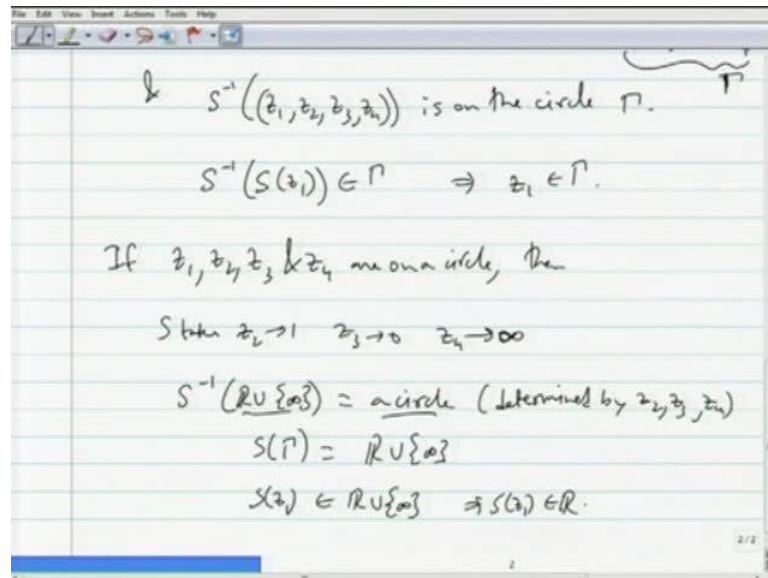 File Edit View Insert Actions Tools Help
Γ
& S⁻¹((z₁, z₂, z₃, z₄)) is on the circle Γ.
S⁻¹(S(z₁)) ∈ Γ ⇒ z₁ ∈ Γ.
If z₁, z₂, z₃ & z₄ are on a circle, then
S takes z₂→1 z₃→0 z₄→∞
S⁻¹(ℝ∪{∞}) = a circle (determined by z₂, z₃, z₄)
S(Γ) = ℝ∪{∞}
S(z₁) ∈ ℝ∪{∞} ⇒ S(z₁) ∈ ℝ.
2/2
2